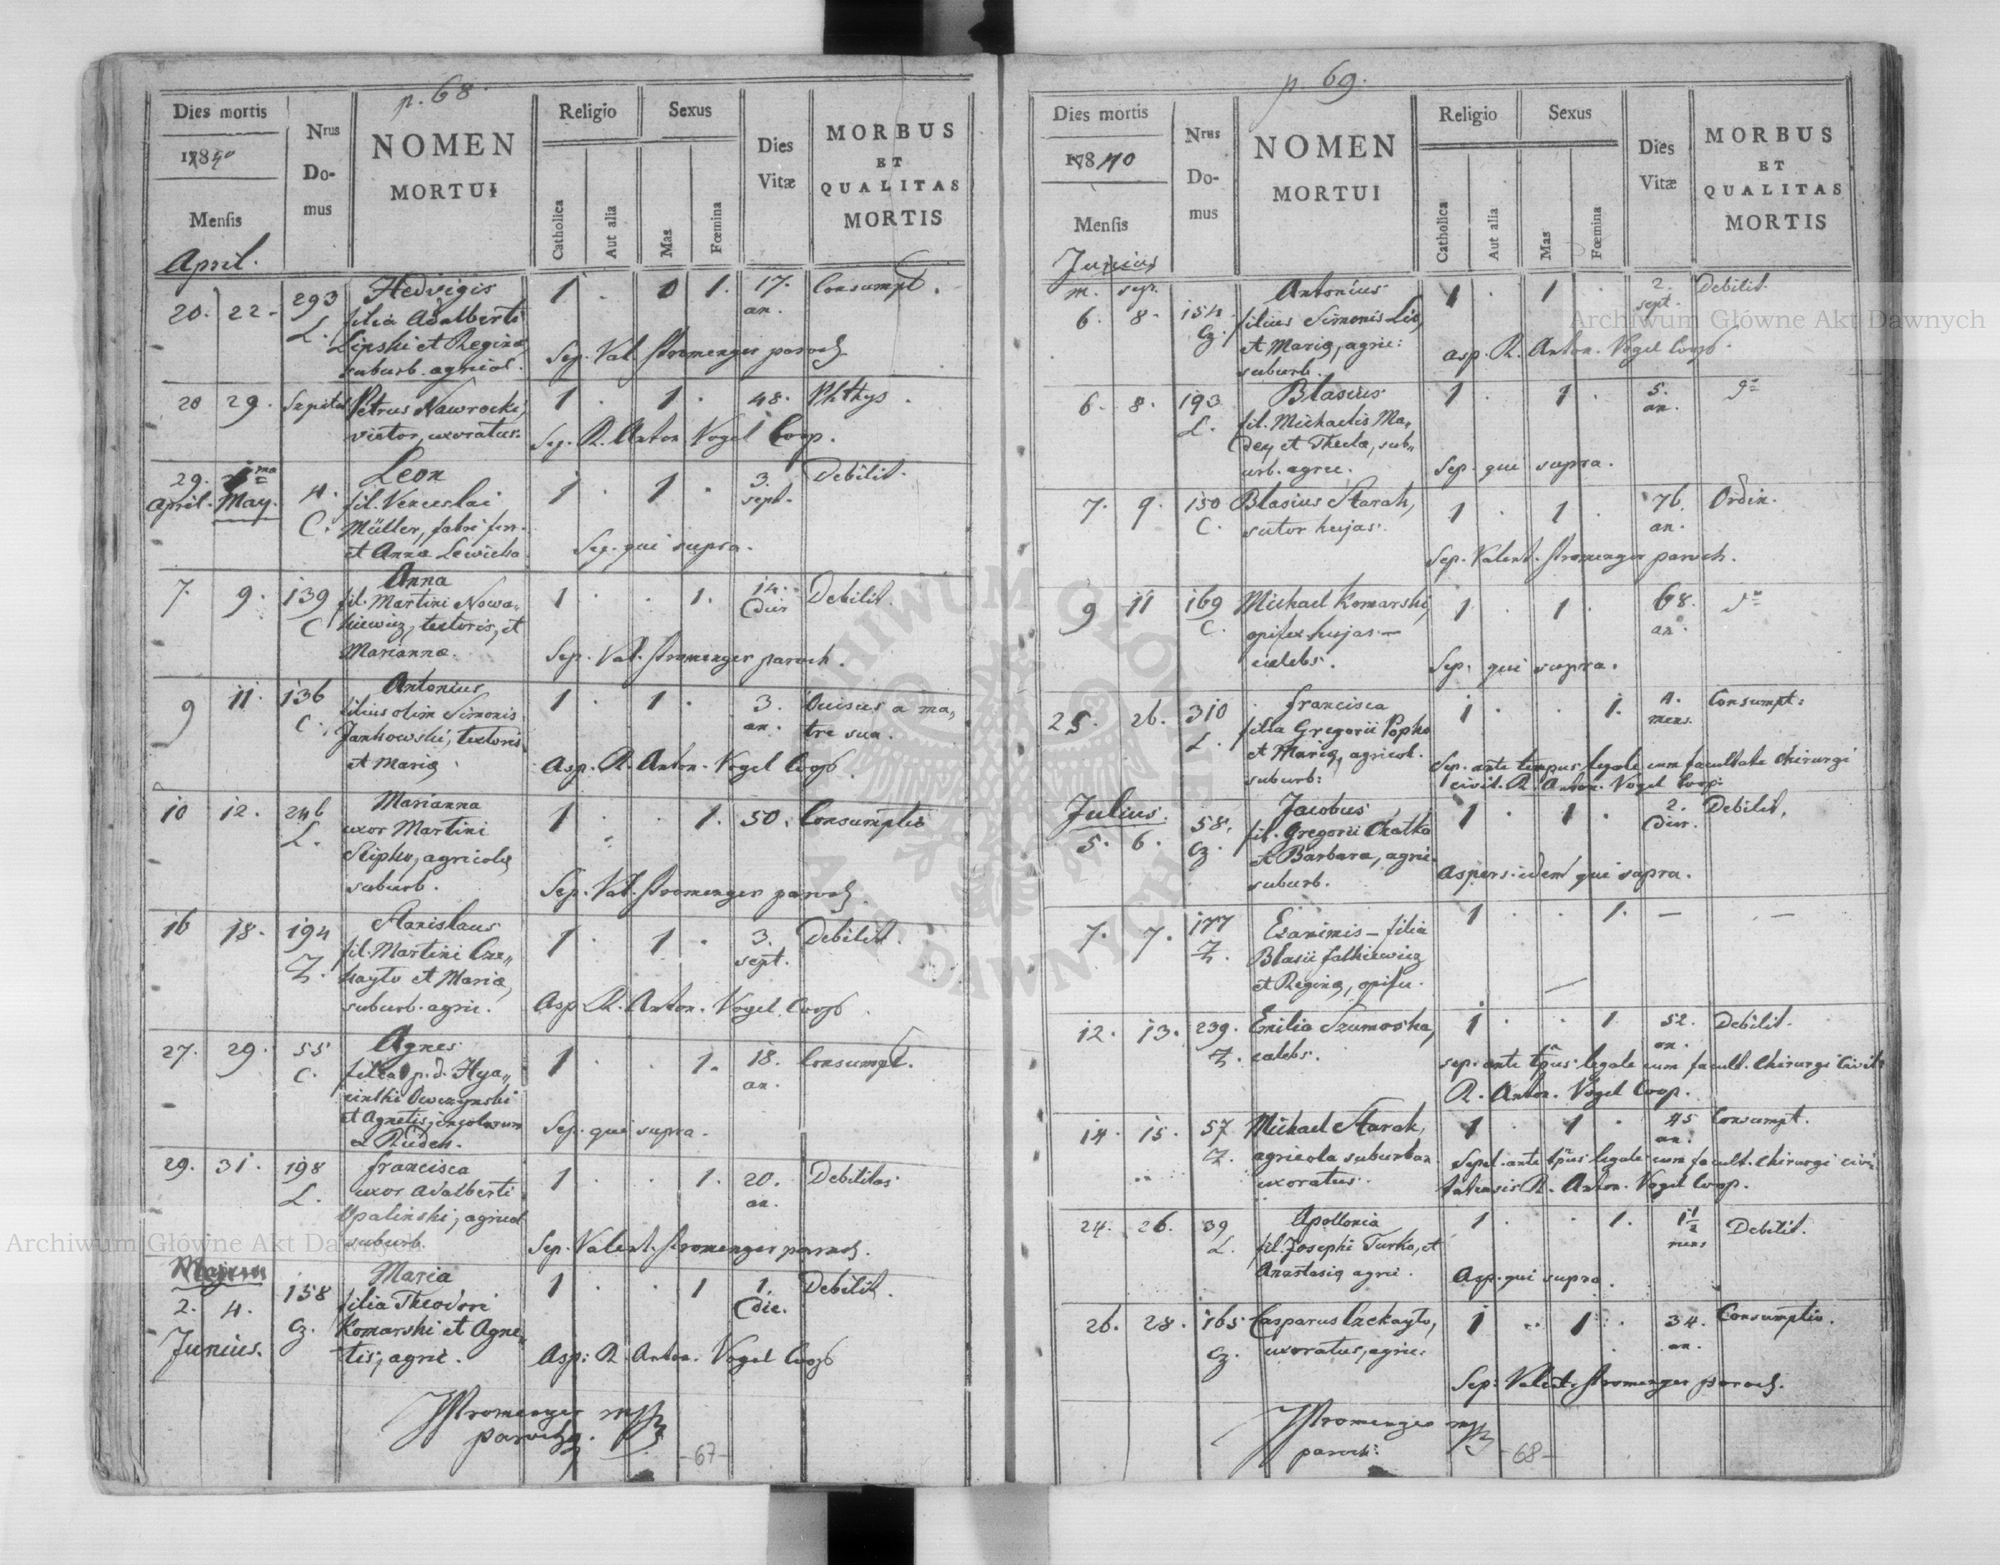 p. 68.
Dies mortis
1840
Mensis
Nrus
Do-
mus
NOMEN
MORTUI
Religio
Catholica
Aut alia
Sexus
Mas
Fœmina
Dies
Vitæ
MORBUS
ET
QUALITAS
MORTIS
April.
20. 22. 293 Hedvigis 1 . 1. 17. Consumpt.
L. filia Adalberti an.
Lipski et Regina,
suburb. agricol. Sep. Val. Stromenger paroch.
20 29. Szpital Petrus Nawrocki, 1 . 1. . 48. Phthys.
vietor, uxoratus. Sep. R. Anton. Vogel Coop.
29. 1ma 4. Leon 1 . 1. . 3. Debilit.
April. May. C. fil. Venceslai sept.
Müller, fabri ferr.
et Anna Lewicka Sep. qui supra.
7. 9. 139 Anna 1 . . 1. 14. Debilit.
C fil. Martini Nowa- dier
kiewicz, textoris, et
Marianna. Sep. Val. Stromenger paroch.
9 11. 136 Antonius 1 . 1. . 3. Ouisus a ma,,
C. filius olim Simonis an. tre sua.
Jankowski, textoris
et Maria Asp. R. Anton. Vogel Coop.
10 12. 246 Marianna 1 . . 1. 50. Consumptio
L. uxor Martini
Stipko, agricola
suburb. Sep. Val. Stromenger paroch.
16 18. 194 Stanislaus 1 . 1. . 3. Debilit.
Z. fil. Martini Cze,, sept.
kayto et Maria,
suburb. agric. Asp R. Anton. Vogel Coop.
27. 29. 55 Agnes 1 . . 1. 18. Consumpt.
C. filia p.d. Hya,, an.
cinthi Owczynski
et Agnetis, incolarum
ex Rudek. Sep. qui supra.
29. 31. 198 Francisca 1 . . 1. 20. Debilitas
L. uxor Adalberti an.
Opalinski, agricol
suburb. Sep. Valent. Stromenger paroch.
2. 4. 158 Maria 1 . . 1 1. Debilit.
Junius. Cz. filia Theodori die.
Komarski et Agne,,
tis, agric. Asp: R. Anton. Vogel Coop
VStromenger mp
parochq.
-67-
p. 69.
Dies mortis
1840
Mensis
Nrus
Do-
mus
NOMEN
MORTUI
Religio
Catholica
Aut alia
Sexus
Mas
Fœmina
Dies
Vitæ
MORBUS
ET
QUALITAS
MORTIS
Junius
m. sep.
6. 8. 154 Antonius 1 . 1 . 2. Debilit.
Cz. filius Simonis Lis, sept.
et Maria, agric:
suburb. asp. R. Anton. Vogel Coop.
6. 8. 193 Blasius 1 . 1 . 5. do
L. fil. Michaelis Ma, an.
dey et Thecla, sub,,
urb. agric. Sep. qui supra.
7. 9. 150 Blasius Starak, 1 . 1 . 76. Ordin.
C. sutor hujas. an.
Sep. Valent. Stromenger paroch.
9 11 169 Michael Komarski, 1 . 1 . 68. do
C. opifex hujas. — an.
cælebs. Sep. qui supra.
25. 26. 310 Francisca 1 . . 1. 4. Consumpt:
L. filia Gregorii Popko mens.
et Maria, agricol.
suburb: Sep. ante tempus legale cum facultate Chirurgi
civit. R. Anton. Vogel Coop:
Julius.
5. 6. 58. Jacobus 1 . 1 . 2. Debilit.
Cz. fil. Gregorii Chatko dier.
et Barbara, agric.
suburb. Aspers. idem qui supra.
7. 7. 177 Exanimis — filia 1 . . 1. — —
Z. Blasii Falkiewicz
et Regina, opific.
12. 13. 239. Emilia Szumoska, 1 . . 1 52. Debilit.
Z. cælebs. an.
sep. ante tpus legale cum facult. Chirurgi Civit.
R. Anton. Vogel Coop.
14. 15. 57 Michael Starak, 1 . 1 . 45 Consumpt.
Z. agricola suburban. an.
uxoratus. Sepel. ante tpus legale cum facult. Chirurgi civi,
tatensis R. Anton. Vogel Coop.
24. 26. 39 Apollonia 1 . . 1. 1 1/2 Debilit.
L. fil. Josephi Turko, et mens
Anastasia agric. Asp. qui supra.
26. 28. 165 Casparus Czekayto, 1 .. 1 . 34. Consumptio.
Cz. uxoratus, agric. an.
Sep: Valent. Stromenger paroch.
VStromenger mp
paroch:
-68-
Archiwum Główne Akt Dawnych
Archiwum Główne Akt Dawnych
ARCHIWUM GŁÓWNE AKT DAWNYCH